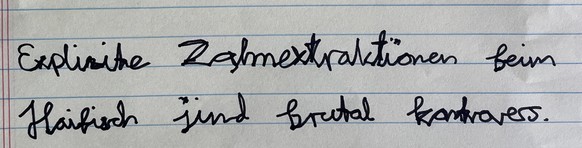 Explizite Zahnextraktionen beim
Haifisch sind brutal kontrovers.